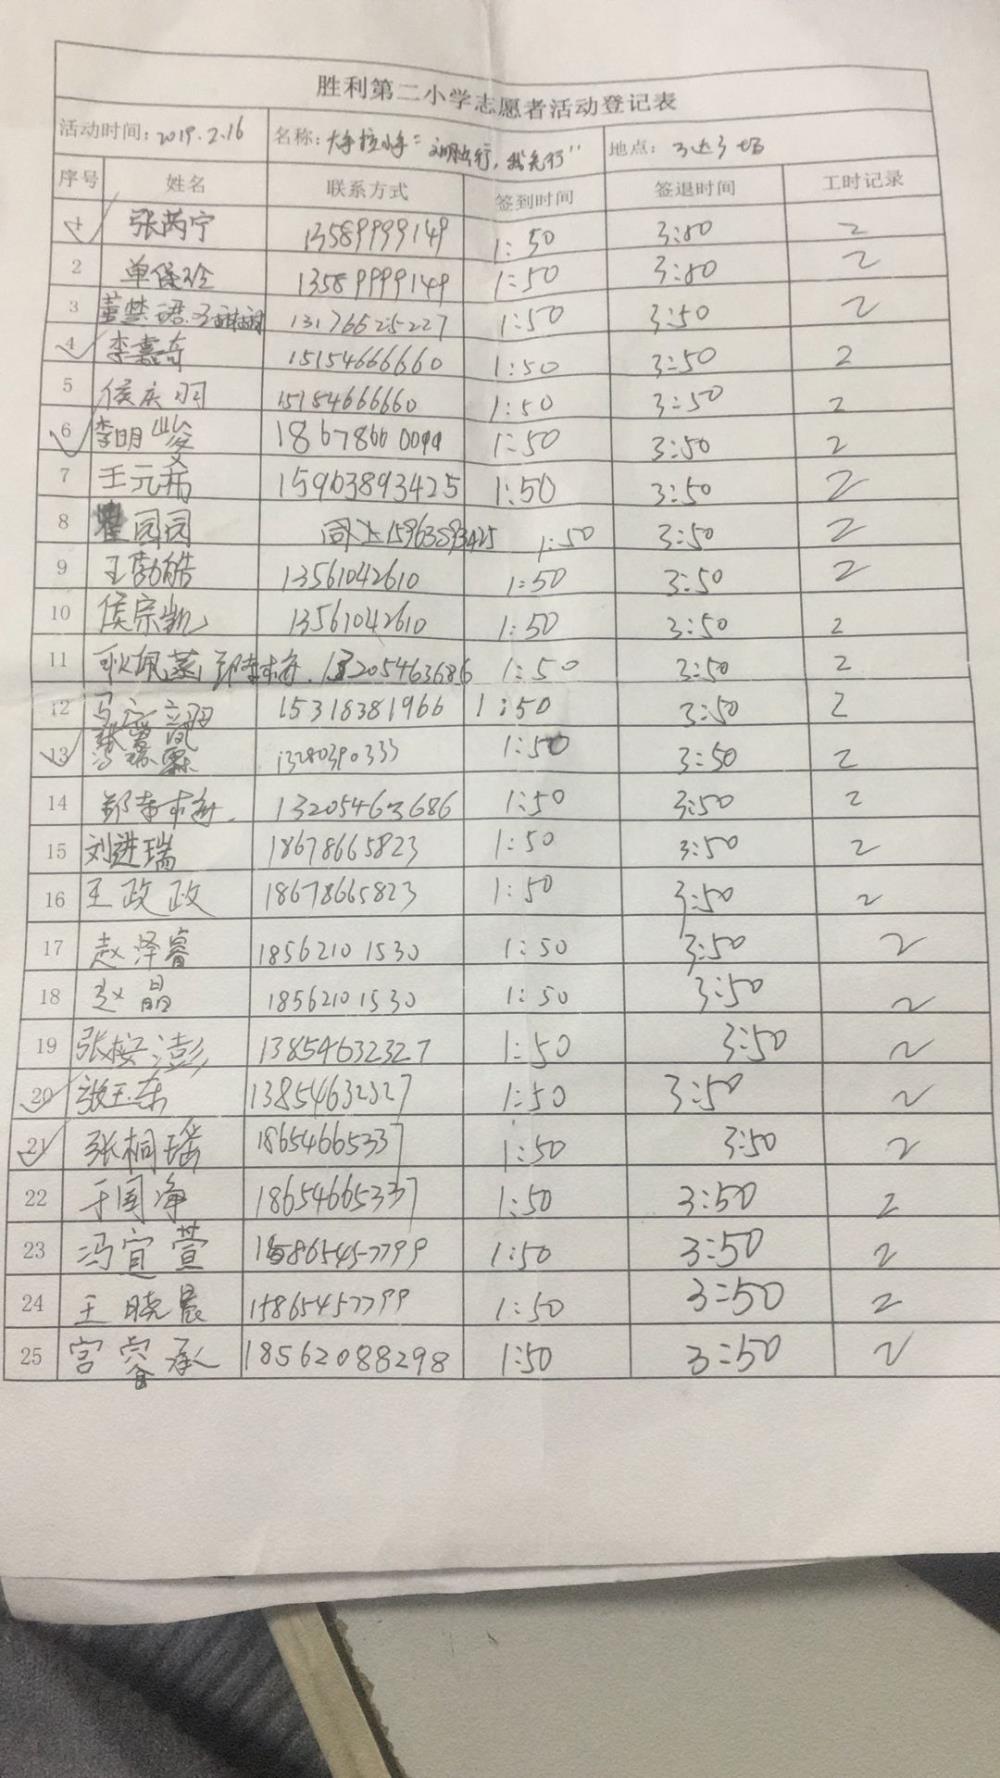 胜利第二小学志愿者活动登记表
活动时间：2019.2.16 名称：大手拉小手“文明出行，我先行” 地点：
序号 姓名 联系方式 签到时间 签退时间 工时记录
1 张芮宁 13589999149 1:50 3:50 2
2 单保玲 13589999149 1:50 3:50 2
3 董楚珺 13176625227 1:50 3:50 2
4 李嘉奇 15154666660 1:50 3:50 2
5 侯庆羽 15184666660 1:50 3:50 2
6 李明 1:50 3:50 2
7 王元 15963893425 1:50 3:50 2
8 翟园园 同上15963893425 1:50 3:50 2
9 王勤皓 13561042610 1:50 3:50 2
10 侯宗凯 13561042610 1:50 3:50 2
11 13205463686 1:50 3:50 2
12 马 15318381966 1:50 3:50 2
13 13280390333 1:50 3:50 2
14 13205463686 1:50 3:50 2
15 刘进瑞 18678665823 1:50 3:50 2
16 王政政 18678665823 1:50 3:50 2
17 赵泽睿 18562101530 1:50 3:50 2
18 赵晶 18562101530 1:50 3:50 2
19 张桉澎 13854632327 1:50 3:50 2
20 张玉东 13854632327 1:50 3:50 2
21 张桐瑶 18654665337 1:50 3:50 2
22 于国净 18654665337 1:50 3:50 2
23 冯宜萱 15865457799 1:50 3:50 2
24 王晓晨 15865457799 1:50 3:50 2
25 宫睿承 18562088298 1:50 3:50 2